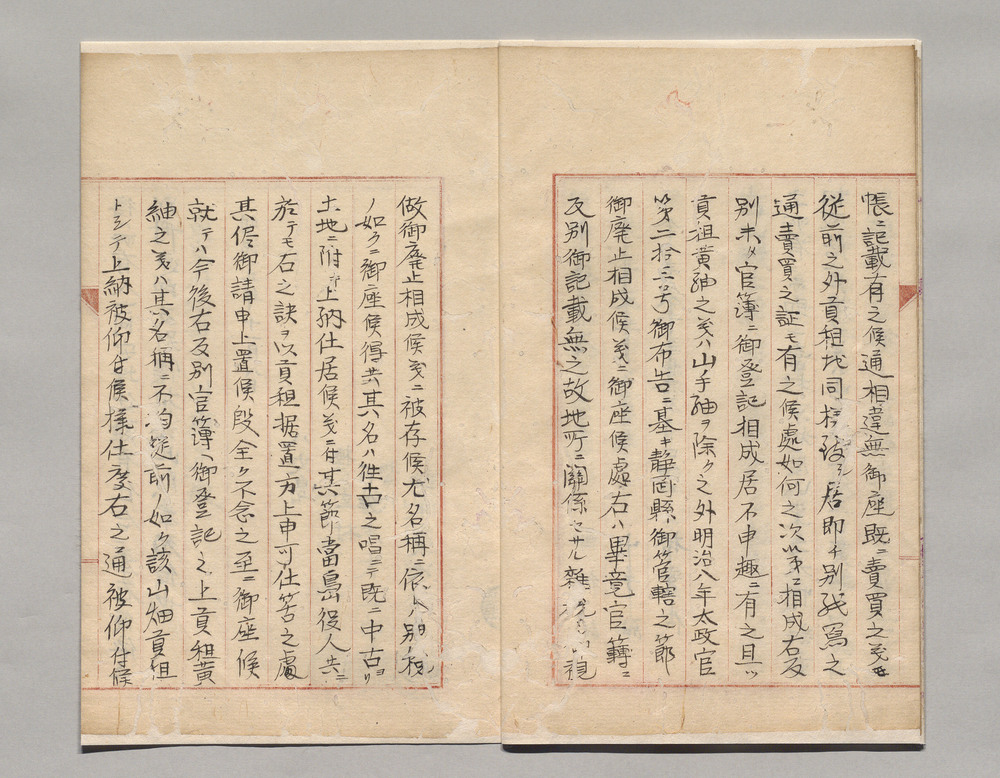 帳ニ記載有之候通相違無御座既ニ賣買之義モ
従前之外貢租地同様致シ居即チ別紙寫之
通賣買之証モ有之候處如何之次第ニ相成右反
別未タ官簿ニ御登記相成居不申趣ニ有之且ツ
貢祖黄紬之義ハ山手紬ヲ除ク之外明治八年太政官
第二拾三号御布告ニ基キ静岡縣御管轄之節
御廃止相成候義ニ御座候處右ハ畢竟官簿ニ
反別御記載無之故地所ニ関係セサル雜税ト視
做御廃止相成候義ニ被存候尤名称ニ依レハ別税
ノ如クニ御座候得共其名ハ往古之唱ニテ既ニ中古ヨリ
土地ニ附キ上納仕居候義ニ付其節當島役人共ニ
於テモ右之訣ヲ以貢租据置方上申可仕筈之處
其侭御請申上置候段全ク不念之至ニ御座候
就テハ今後右反別官簿ヘ御登記之上貢租黄
紬之義ハ其名稱ニ不拘従前ノ如ク該山畑貢租
トシテ上納被仰付候様仕度右之通被仰付候